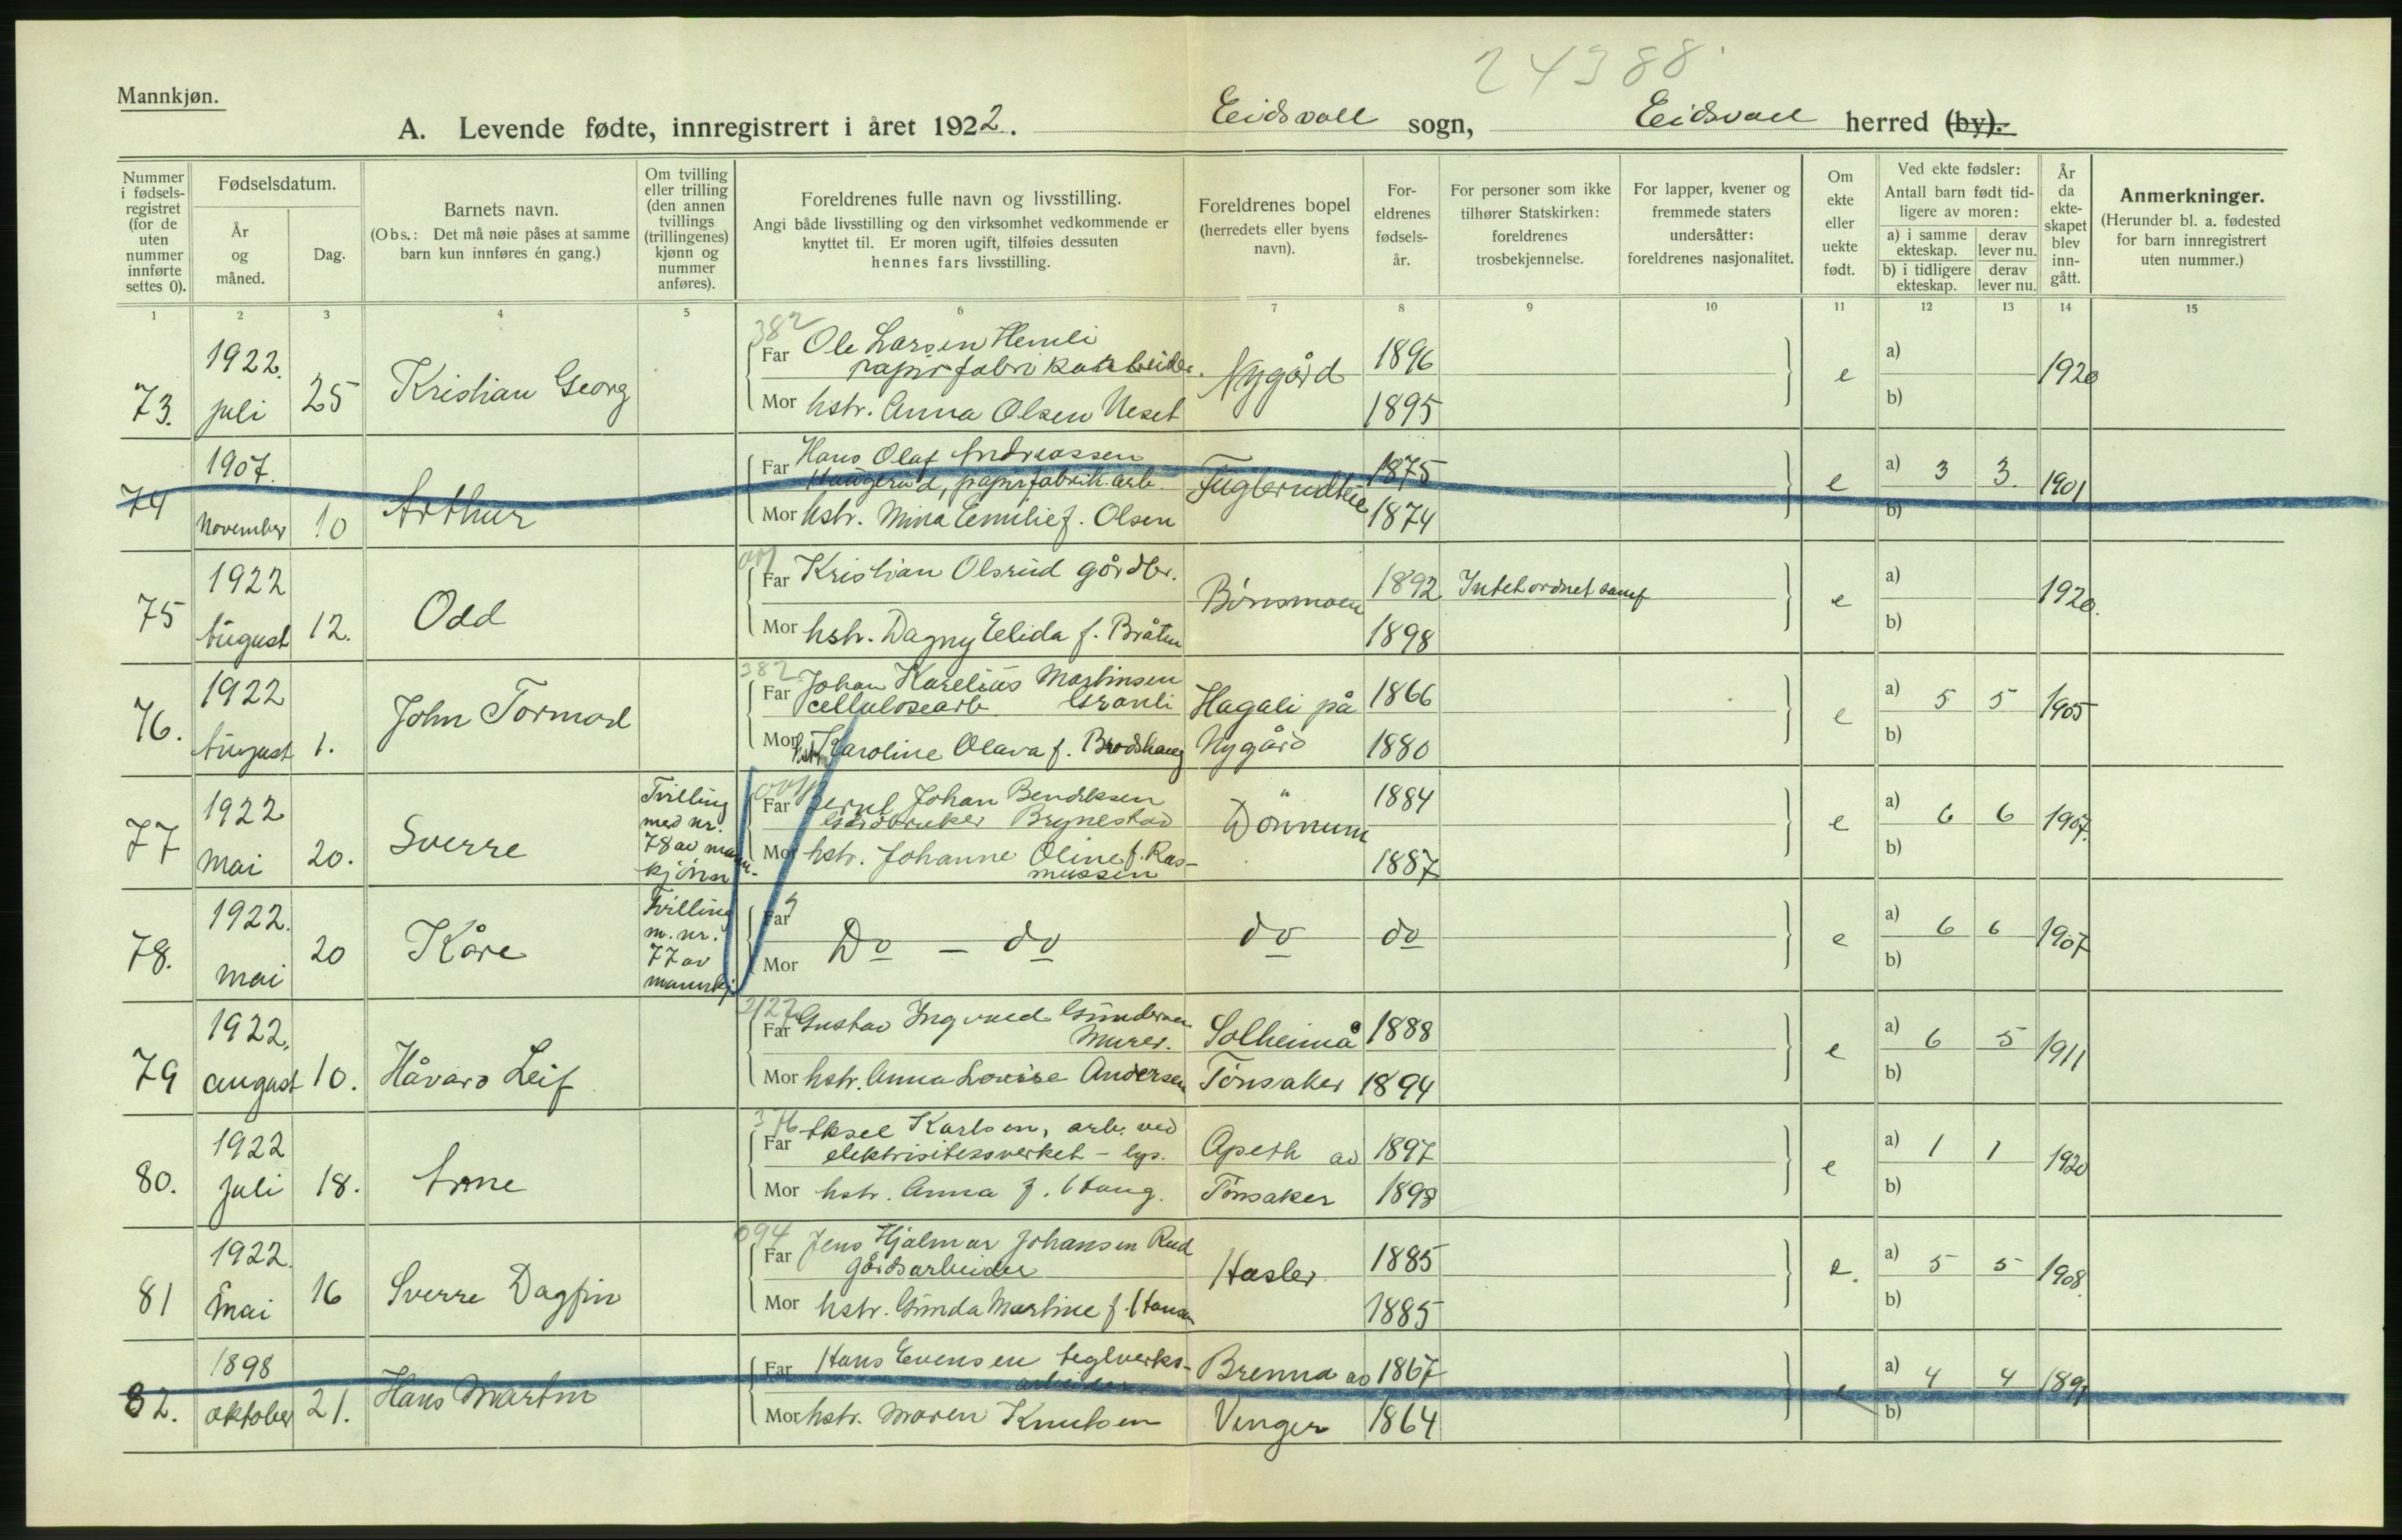 24388.
Mannkjøn.
A. Levende fødte, innregistrert i året 1922. Eidsvoll sogn, Eidsvoll herred (by).
Nummer i fødsels-registret (for de uten nummer innførte settes 0).
Fødselsdatum.
År og måned.
Dag.
Barnets navn.
(Obs.: Det må nøie påses at samme barn kun innføres én gang.)
Om tvilling eller trilling (den annen tvillings (trillingenes) kjønn og nummer anføres).
Foreldrenes fulle navn og livsstilling.
Angi både livsstilling og den virksomhet vedkommende er knyttet til. Er moren ugift, tilføies dessuten hennes fars livsstilling.
Foreldrenes bopel (herredets eller byens navn).
For-eldrenes fødsels-år.
For personer som ikke tilhører Statskirken: foreldrenes trosbekjennelse.
For lapper, kvener og fremmede staters undersåtter: foreldrenes nasjonalitet.
Om ekte eller uekte født.
Ved ekte fødsler: Antall barn født tid-ligere av moren:
a) i samme ekteskap. derav lever nu.
b) i tidligere ekteskap. derav lever nu.
År da ekte-skapet blev inn-gått.
Anmerkninger.
(Herunder bl. a. fødested for barn innregistrert uten nummer.)
1 2 3 4 5 6 7 8 9 10 11 12 13 14 15
382
73. 1922. juli 25 Kristian Georg
Far Ole Larsen Hemli
papirfabrikarbeider. Nygård 1896 e a) 1920
Mor hstr. Anna Olsen Neset 1895 b)
74 1907. November 10 Arthur
Far Hans Olaf Andreassen
Haugerud, papirfabrik arb. Fuglerudteie 1875 e a) 3 3. 1901
Mor hstr. Mina Emilie f. Olsen 1874 b)
001
75 1922 August 12. Odd
Far Kristian Olsrud gårdbr. Bönsmoen 1892 Intet ordnet samf e a) 1920.
Mor hstr. Dagny Elida f. Bråten 1898 b)
382
76. 1922 August 1. John Tormod
Far Johan Karelius Martinsen
cellulosearb Granli Hagali på 1866 e a) 5 5 1905
Mor hstr. Karoline Olava f. Brodshaug Nygård 1880 b)
001
77 1922 Mai 20. Sverre
Tvilling med nr. 78 av mann-kjönn
Far Bernt Johan Bendiksen "
Gårdbruker Brynestad Dönnum 1884 e a) 6 6 1907.
Mor hstr. Johanne Oline f. Ras-
mussen 1887 b)
78. 1922. mai 20 Kåre
Tvilling m. nr. 77 av mannkj.
Far Do - do do do e a) 6 6 1907
Mor b)
79 1922. august 10. Håvard Leif
Far Gustav Ingvald Gundersen
Murer. Solheim å 1888 e a) 6 5 1911
Mor hstr. Anna Lovise Andersen Tönsaker 1894 b)
376
80. 1922 juli 18. Arne
Far Aksel Karlsen, arb. ved
elektrisitetsverket - lys. Apeth av 1897 e a) 1 1 1920
Mor hstr. Anna f. Haug. Tönsaker 1898 b)
094
81 1922. mai 16 Sverre Dagfin
Far Jens Hjalmar Johansen Rud
gårdsarbeider Hasler 1885 e. a) 5 5 1908.
Mor hstr. Gunda Martine f. Hansen 1885 b)
82. 1898 oktober 21. Hans Martin
Far Hans Evensen teglverks-
arbeider Brenna av 1867 e a) 4 4 1891
Mor hstr. Maren Knutsen Vinger 1864 b)